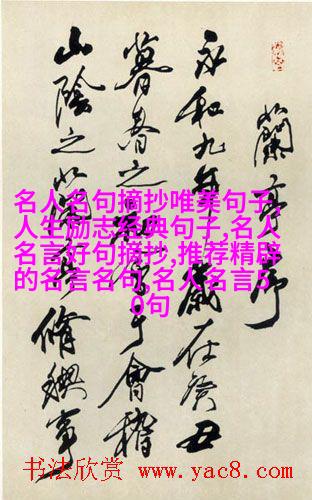 蘭亭序
永和九年歲在癸丑
暮春之初會于會稽
山陰之蘭亭脩禊事
名人名句摘抄唯美句子,
人生励志经典句子,名人
名言好句摘抄,推荐精辟
的名言名句,名人名言5
0句
书法欣赏 www.yac8.com